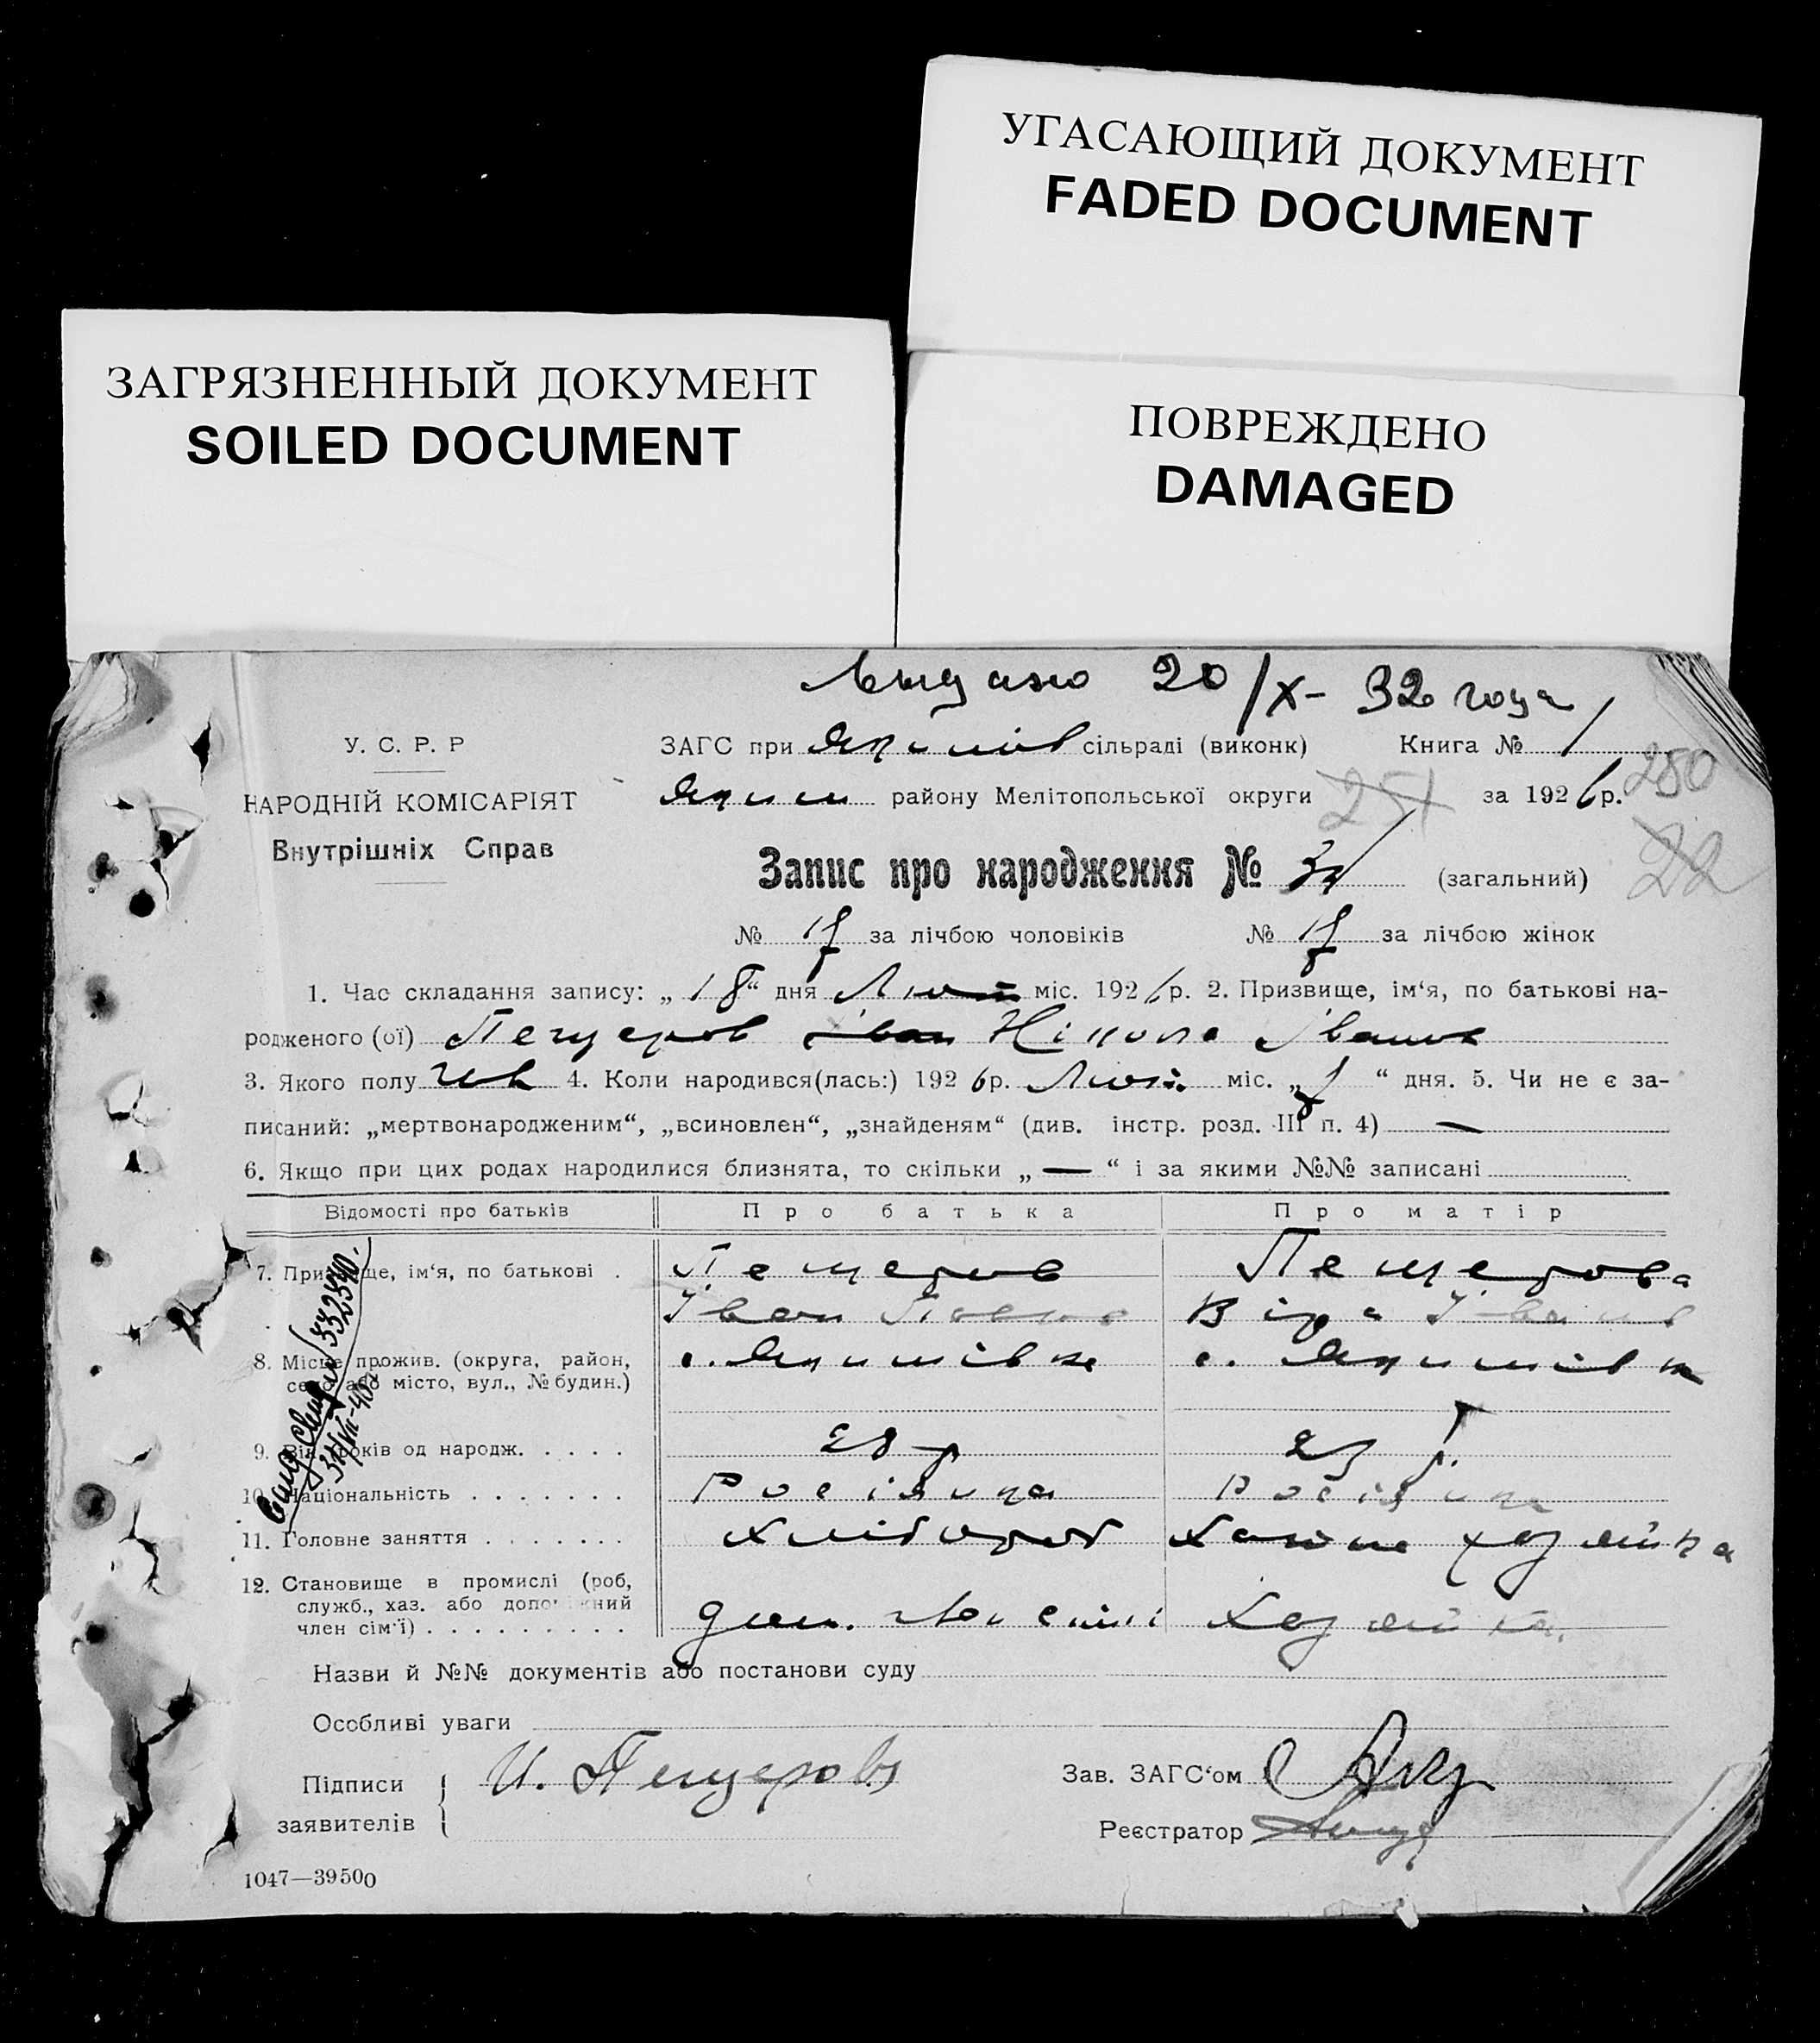 УГАСАЮЩИЙ ДОКУМЕНТ
FADED DOCUMENT
ЗАГРЯЗНЕННЫЙ ДОКУМЕНТ
SOILED DOCUMENT
ПОВРЕЖДЕНО
DAMAGED
Выдано 20/X- 32 года
У. С. Р. Р
ЗАГС при Якимів сільраді (виконк) Книга № 1
НАРОДНІЙ КОМІСАРІЯТ
Яким району Мелітопольської округи 251 за 1926 р. 250
Внутрішніх Справ
Запис про народження № (загальний) 22
№ 17 за лічбою чоловіків № 17 за лічбою жінок
1. Час складання запису: „18“ дня Лют міс. 1926 р. 2. Призвище, ім‘я, по батькові на-
родженого (ої) Пещеров Іван Нікола Іванов
3. Якого полу чол 4. Коли народився(лась:) 1926 р. Лют. міс. „7“ дня. 5. Чи не є за-
писаний: „мертвонародженим“, „всиновлен“, „знайденям“ (див. інстр. розд. III п. 4) —
6. Якщо при цих родах народилися близнята, то скільки „—“ і за якими №№ записані
Відомості про батьків Про батька Про матір
7. Призвище, ім‘я, по батькові . Пещеров Пещерова
Іван Віра Іванів
8. Місце прожив. (округа, район, с. Якимівка с. Якимівка
село або місто, вул., № будин.)
9. Вік, років од народж. . . . . 28 р
10. Національність . . . . . . . Росіянин Росіянка
11. Головне заняття . . . . . . . Хлібороб Хатне хозяйка
12. Становище в промислі (роб,
служб., хаз. або допоміжний
член сім‘ї) . . . . . . . . . Хозяйка
Назви й №№ документів або постанови суду
Особливі уваги
Підписи
заявителів
И. Пещеровъ
Зав. ЗАГС‘ом
Реєстратор
1047—39500